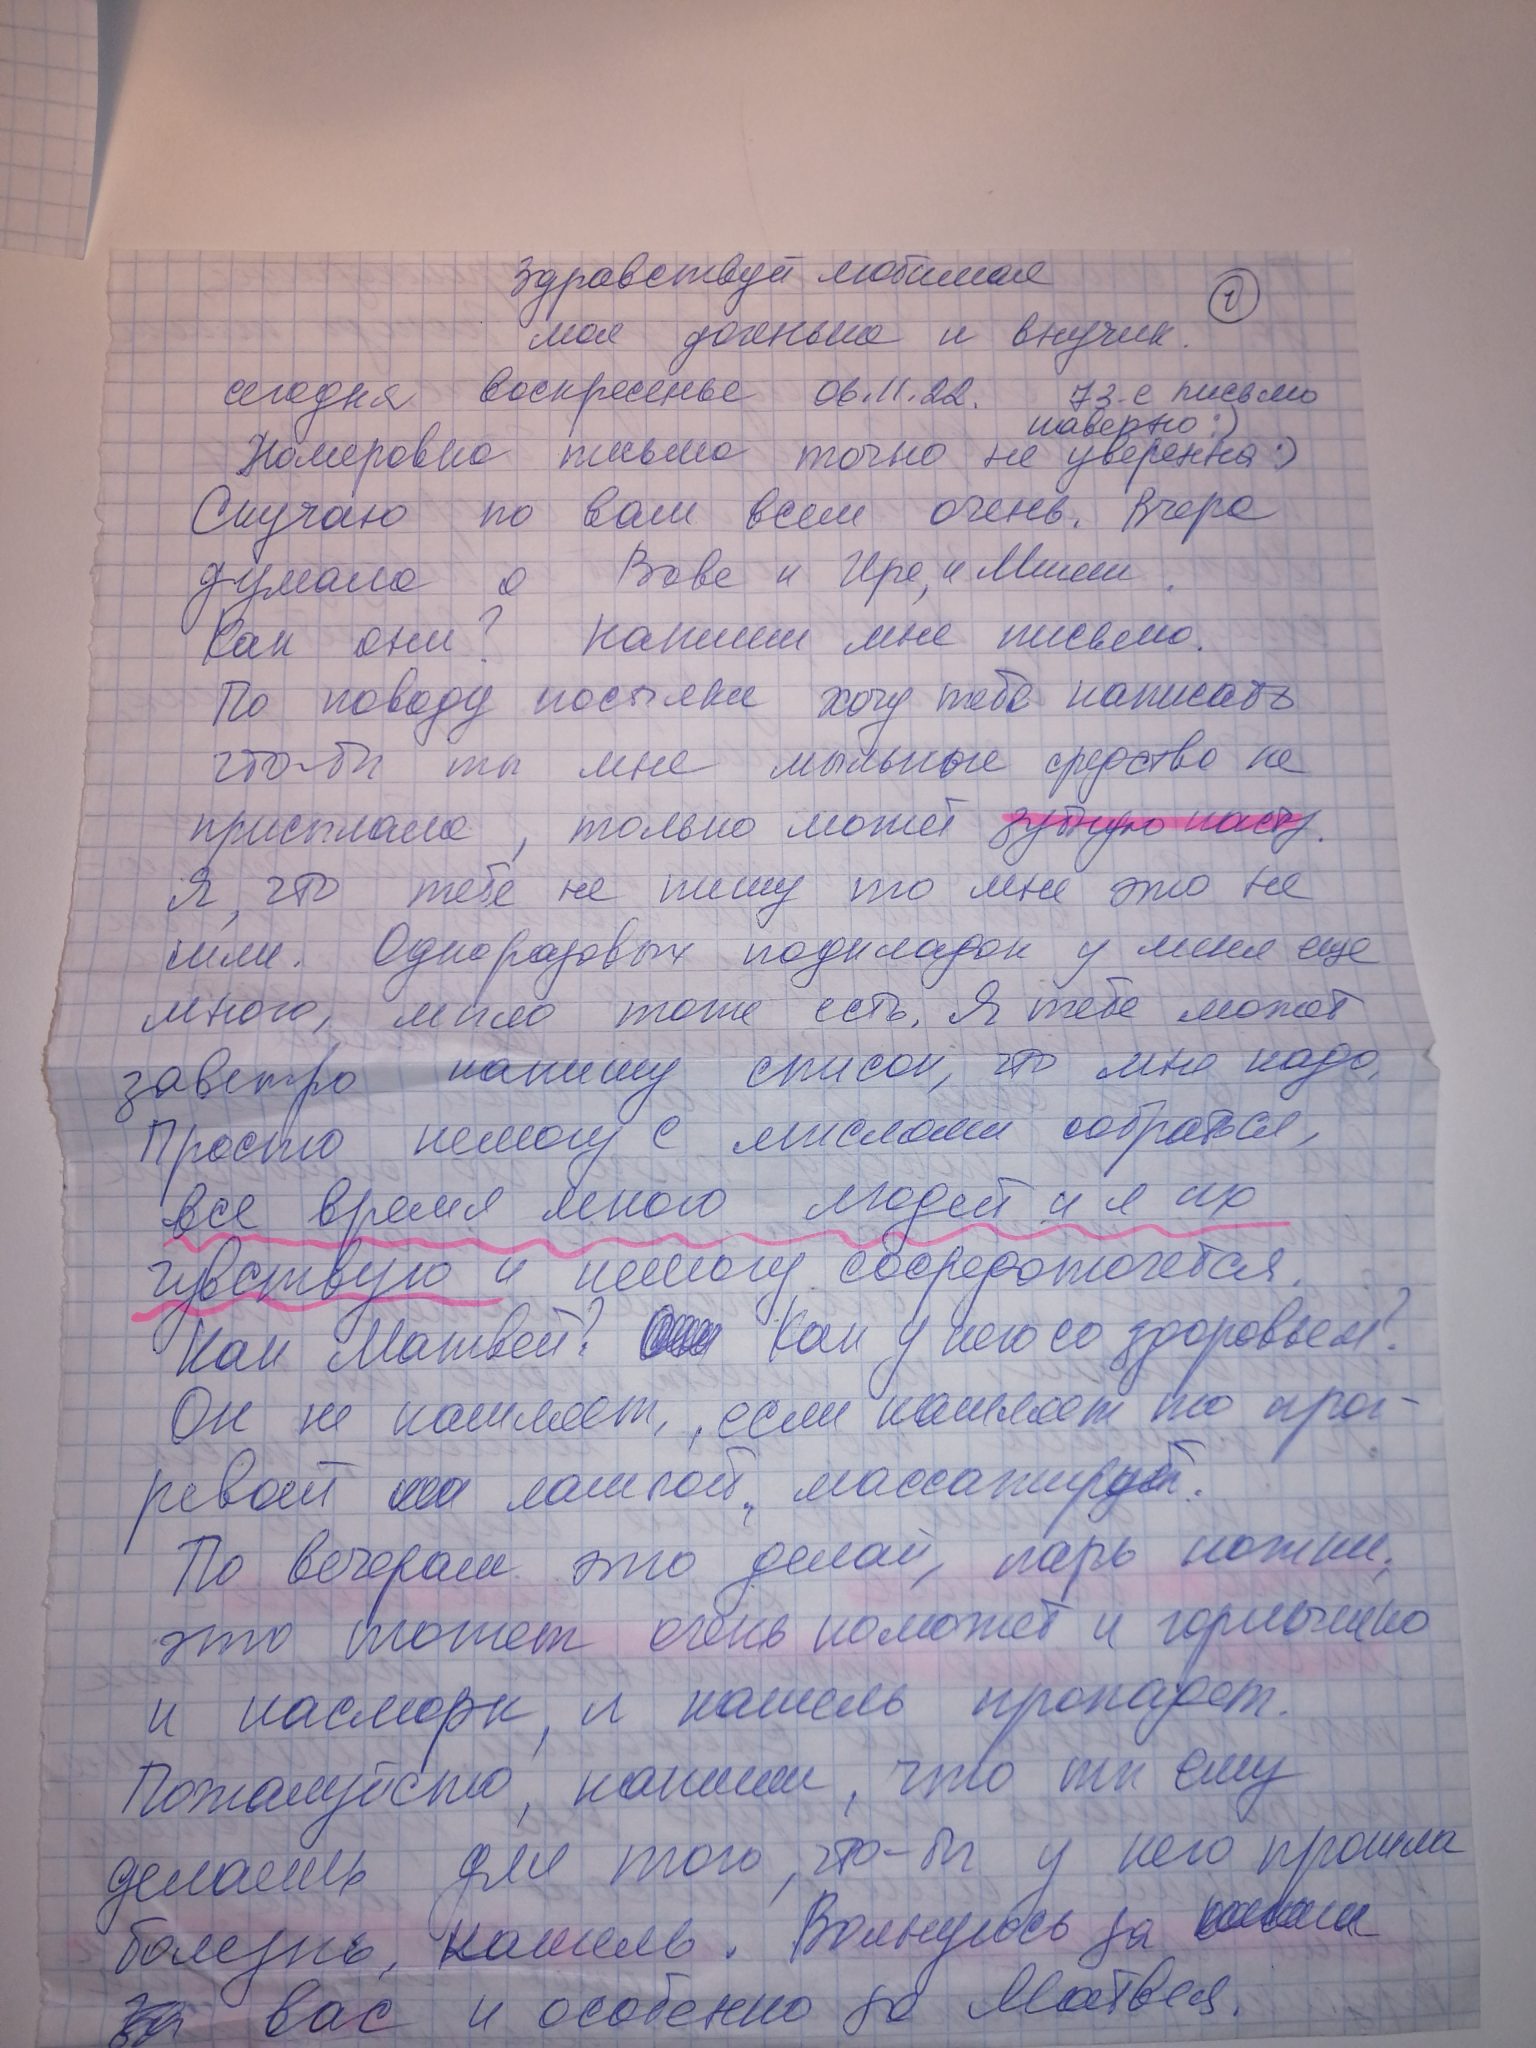 Здравствуй любимая
1
моя доченька и внучик.
сегодня воскресенье 06.11.22. 73-е письмо
наверно :)
Номеровка письма точно не уверенна :)
Скучаю по вам всем очень. Вчера
думала о Вове и Ире, и Миши.
Как они? Напиши мне письмо.
По поводу посылки хочу тебе написать
что-бы ты мне мыльные средства не
присылала, только может зубную пасту.
Я, что тебе не пишу то мне это не
шли. Одноразовых подкладок у меня еще
много, мыло тоже есть. Я тебе может
завтро напишу список, что мне надо,
Просто немогу с мыслями собраться,
все время много людей и я их
чувствую и немогу сосредоточется.
Как Матвей? Как у него со здоровьем?
Он не кашляет, если кашляет то прог-
ревай лампой, массажируй.
По вечерам это делай, парь ножки,
это может очень поможет и горлышко
и насморк, и кашель пропадет.
Пожалуйста, напиши, что ты ему
делаешь для того, что-бы у него прошла
болезнь, кашель. Волнуюсь за
вас и особенно за Матвея.